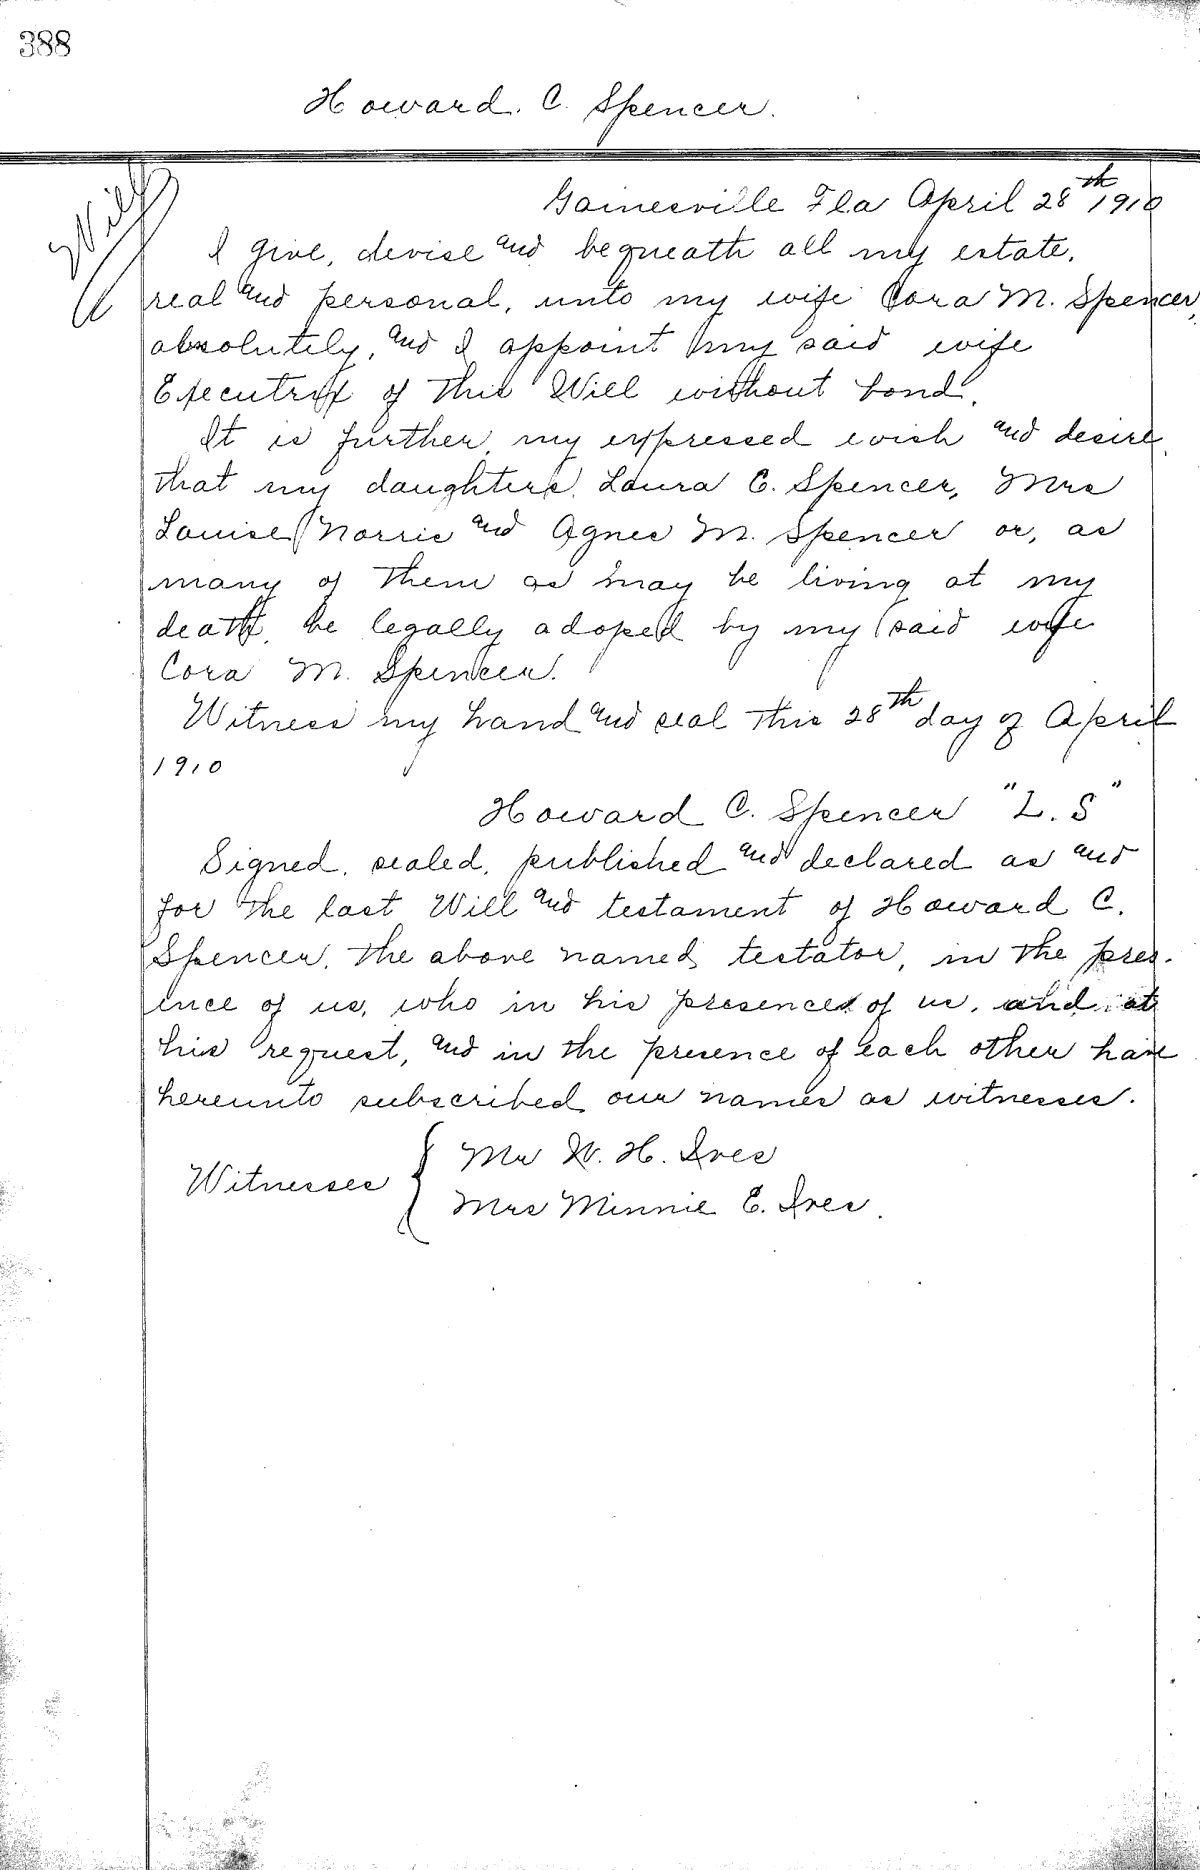 388
Howard. C. Spencer.
Will
Gainesville Fla April 28th 1910
I give, devise and bequeath all my estate,
real and personal, unto my wife Cora M. Spencer,
absolutely, and I appoint my said wife
Executrix of this Will without bond.
It is further, my expressed wish and desire,
that my daughters, Laura C. Spencer, Mrs
Louise Norris and Agnes M. Spencer or, as
many of them as may be living at my
death, be legally adoped by my said wife
Cora M. Spencer.
Witness my hand and seal this 28th day of April
1910
Howard C. Spencer "L. S"
Signed, sealed, published and declared as and
for the last Will and testament of Howard C.
Spencer, the above named testator, in the pres-
ence of us, who in his presence of us, and at
his request, and in the presence of each other have
hereunto subscribed our names as witnesses.
Witnesses { Mr W. H. Ives
Mrs Minnie E. Ives.